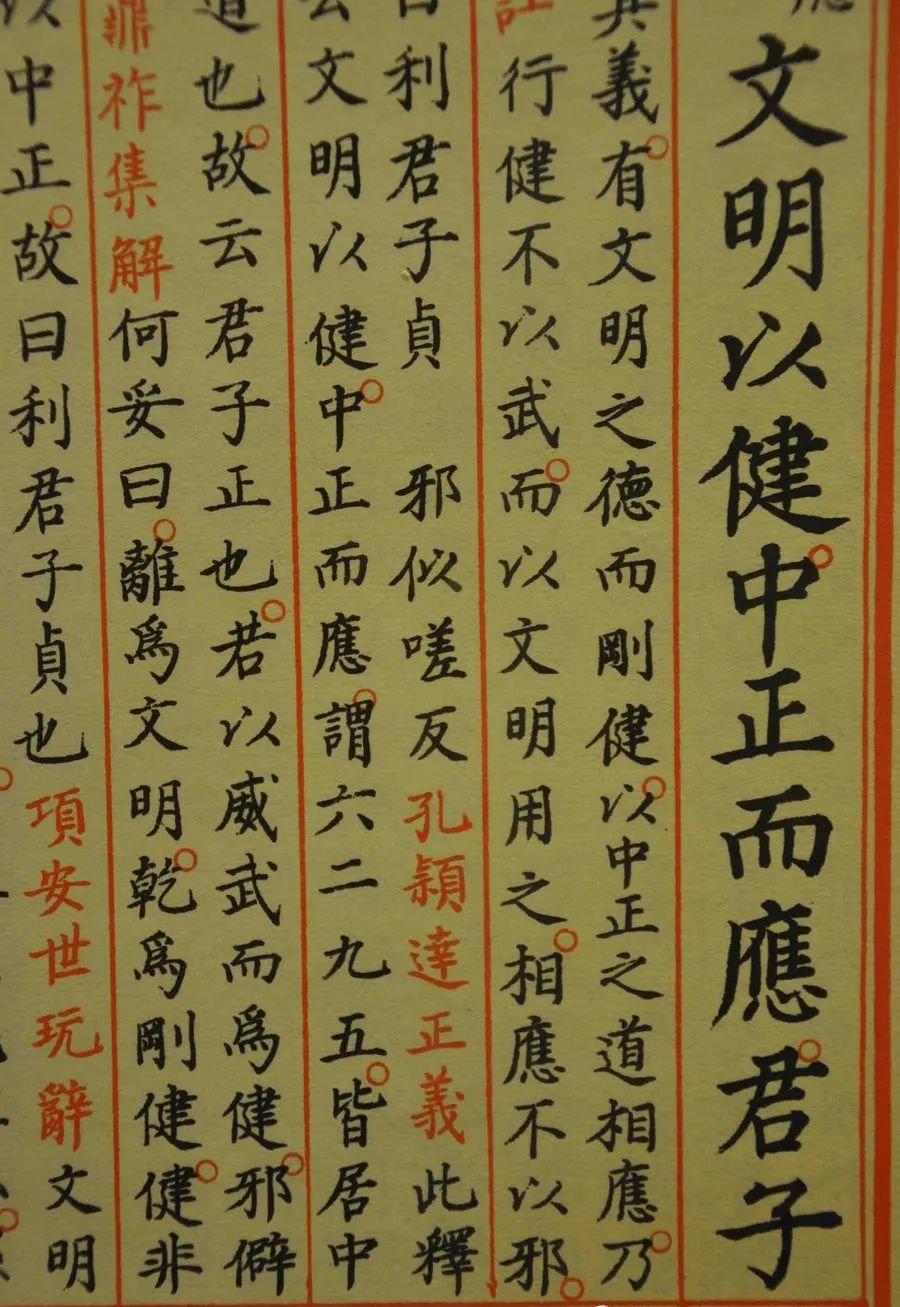 文明以健中正而應君子
其義有文明之德而剛健以中正之道相應乃
註行健不以武而以文明用之相應不以邪
曰利君子貞 邪似嗟反孔穎達正義此釋
云文明以健中正而應謂六二九五皆居中
道也故云君子正也若以威武而爲健邪僻
鼎祚集解何妥曰離爲文明乾爲剛健健非
以中正故曰利君子貞也項安世玩辭文明